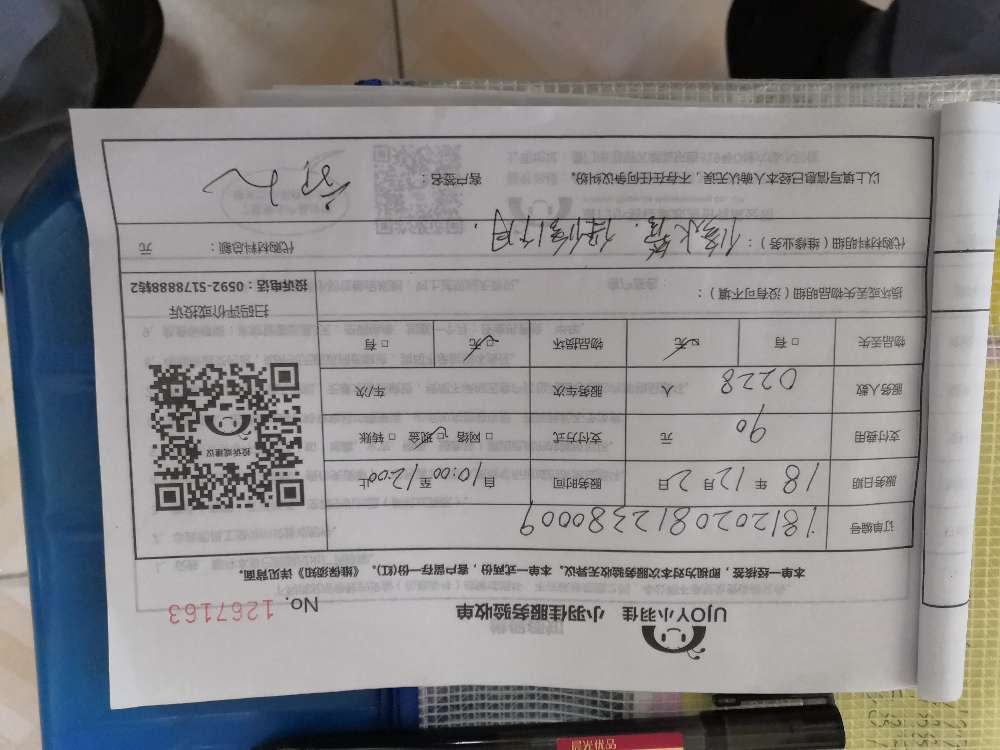 UJOY小羽佳 小羽佳服务验收单 No. 1267163
本单一经核签，即视为对本次服务验收无异议。本单一式两份，客户留存一份(红)。《维保须知》详见背面。
订单编号 1812020812380009
服务日期 18年12月2日 服务时间 自10:00至12:00止
支付费用 90元 支付方式 □网络 □现金 □转账
服务人数 0228人 服务车次 车/次
物品丢失 □有 □无 物品损坏 □无 □有
损坏或丢失物品明细（没有可不填）：
投诉或建议
扫码评价或投诉
投诉电话：0592-5178888转2
代购材料明细（维修业务）：修水管. 保修1个月.
代购材料总额： 元
以上填写信息已经本人确认无误，不存在任何争议纠纷。 客户签名：